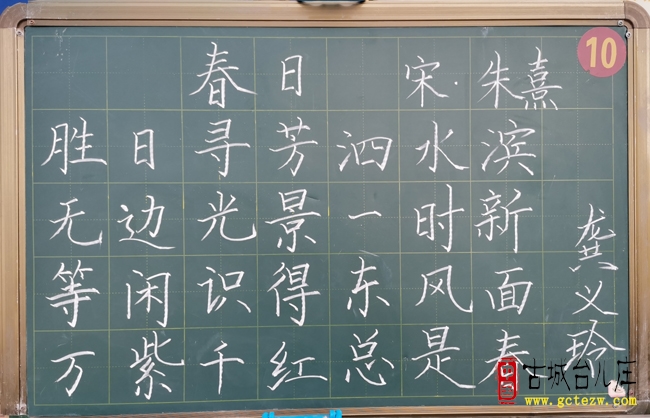 10
春日 宋·朱熹
胜日寻芳泗水滨
无边光景一时新
等闲识得东风面
万紫千红总是春
龚义玲
古城台儿庄
www.gctezw.com